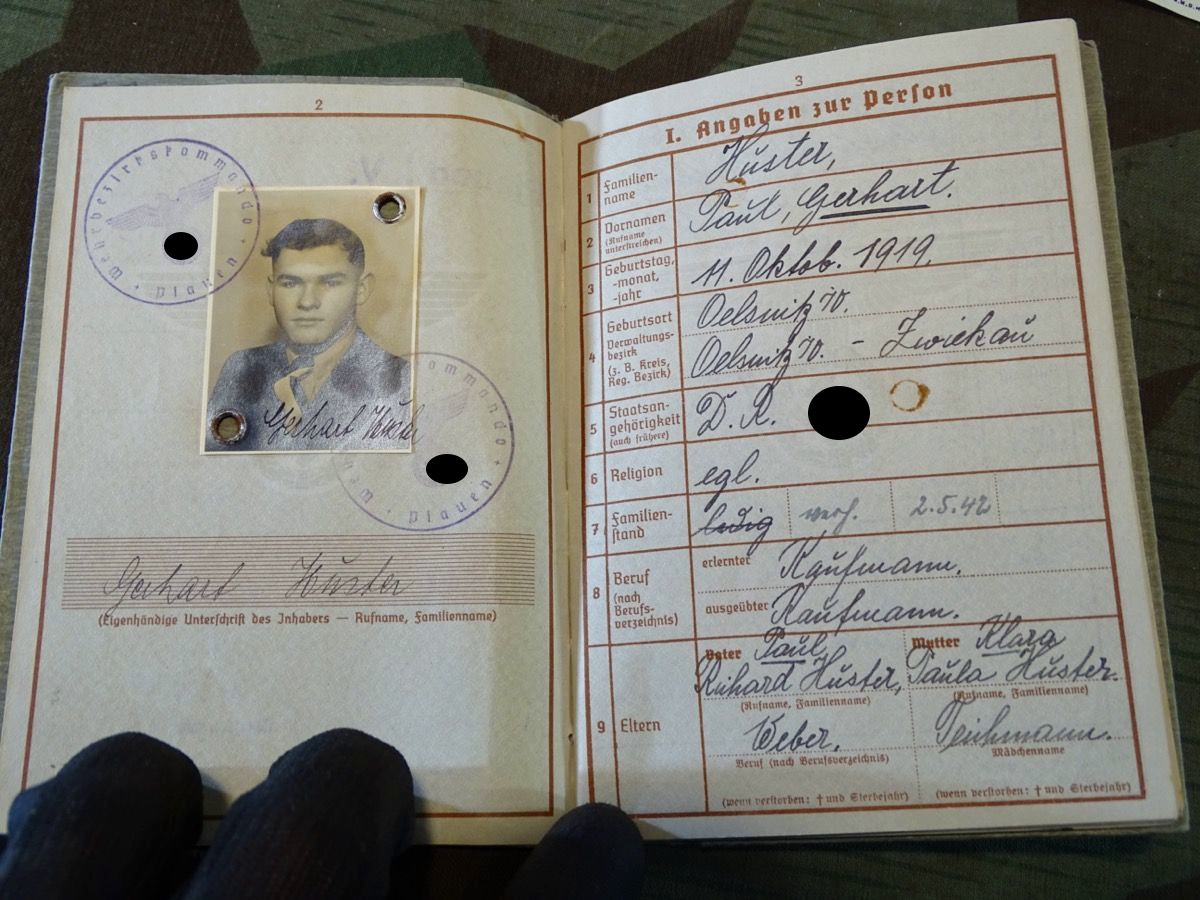 2
Wehrbezirkskommando
Plauen
Gerhart Huster
Wehrbezirkskommando
Plauen
Gerhart Huster
(Eigenhändige Unterschrift des Inhabers — Rufname, Familienname)
3
I. Angaben zur Person
1 Familien-
name
Huster,
2 Vornamen
(Rufname
unterstreichen)
Paul, Gerhart.
3 Geburtstag,
-monat,
-jahr
11. Oktob. 1919.
4 Geburtsort
Verwaltungs-
bezirk
(z. B. Kreis,
Reg. Bezirk)
Oelsnitz /V.
Oelsnitz /V. - Zwickau
5 Staatsan-
gehörigkeit
(auch frühere)
D. R.
6 Religion
egl.
7 Familien-
stand
ledig verh. 2.5.42
8 Beruf
(nach
Berufs-
verzeichnis)
erlernter Kaufmann.
ausgeübter Kaufmann.
9 Eltern
Vater Paul
Richard Huster,
(Rufname, Familienname)
Weber.
Beruf (nach Berufsverzeichnis)
(wenn verstorben: † und Sterbejahr)
Mutter Klara
Paula Huster.
(Rufname, Familienname)
Teichmann.
Mädchenname
(wenn verstorben: † und Sterbejahr)